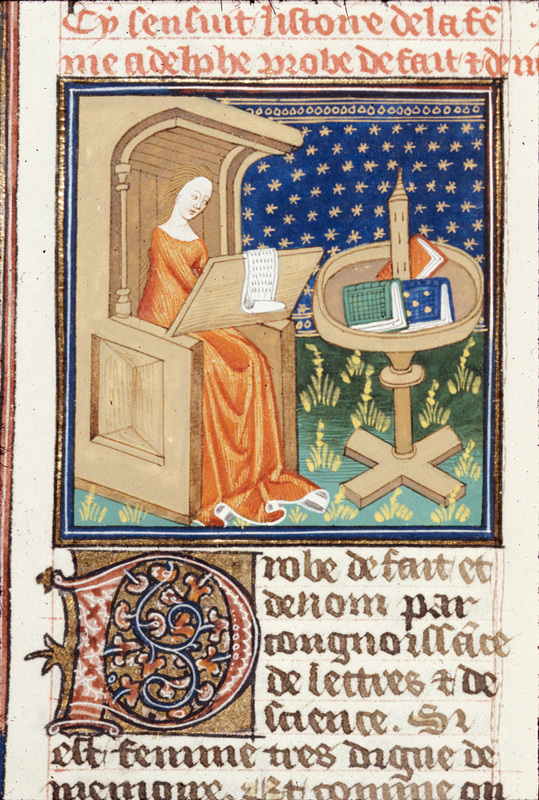 Cy sensuit listoire de la fē
me adelphe probe de fait ⁊ de n
Probe de fait et
de nom par
congnoissāce
de lettres ⁊ de
science. Si
est femme tres digne de
memoire. Et comme qu